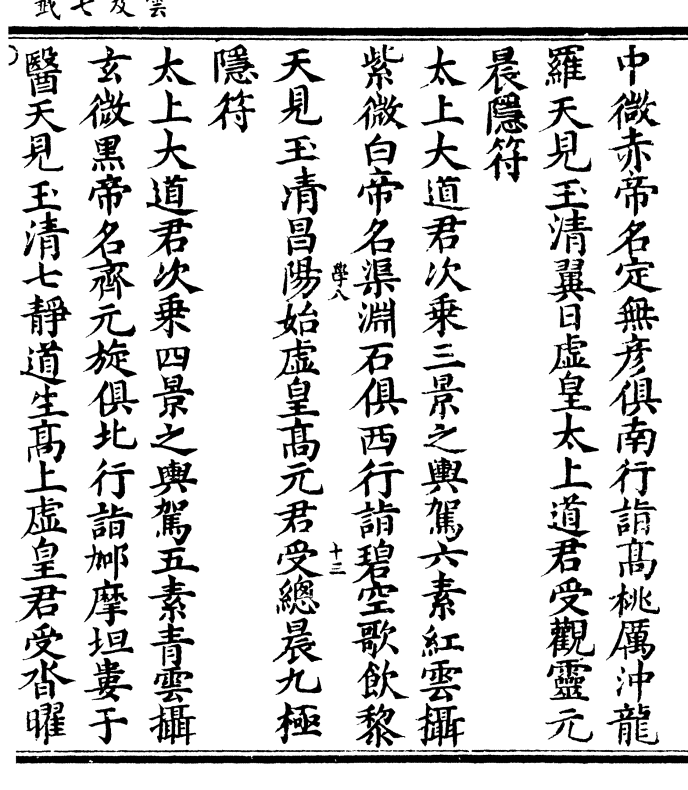 中微赤帝名定無彦俱南行詣髙桃厲沖龍
羅天見玉清翼日虚皇太上道君受觀靈元
晨隱符
太上大道君次乗三景之輿駕六素紅雲攝
紫微白帝名渠淵石俱西行詣碧空歌飲黎
學八
十三
天見玉清昌陽始虚皇髙元君受緫晨九極
隱符
太上大道君次乗四景之輿駕五素青雲攝
玄微黒帝名齊元旋俱北行詣㖿摩坦婁于
翳天見玉清七靜道生髙上虚皇君受沓曜